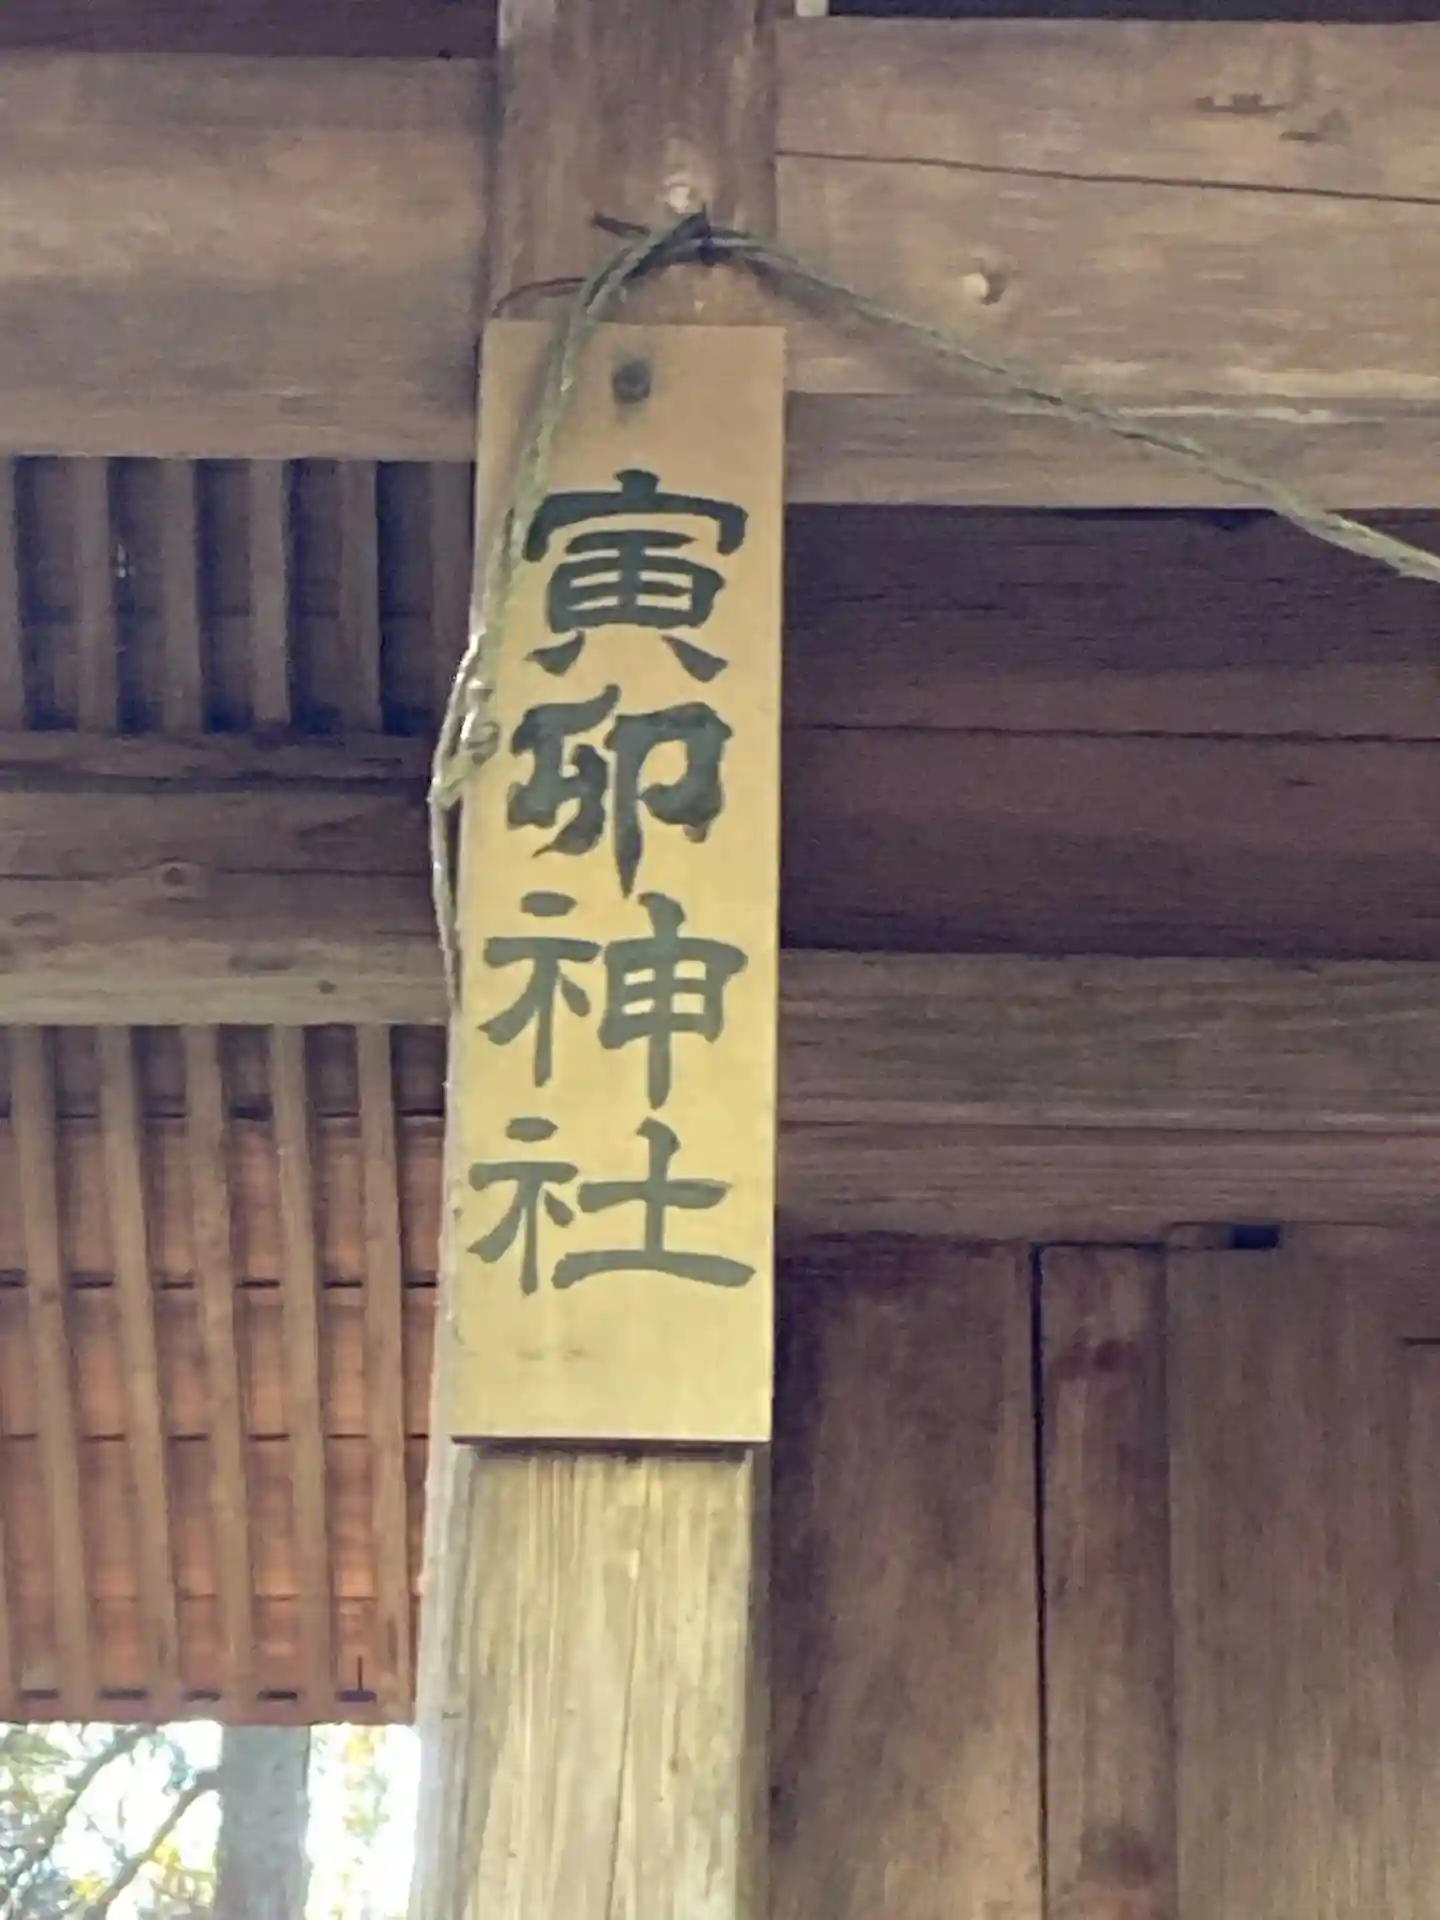 寅卯神社